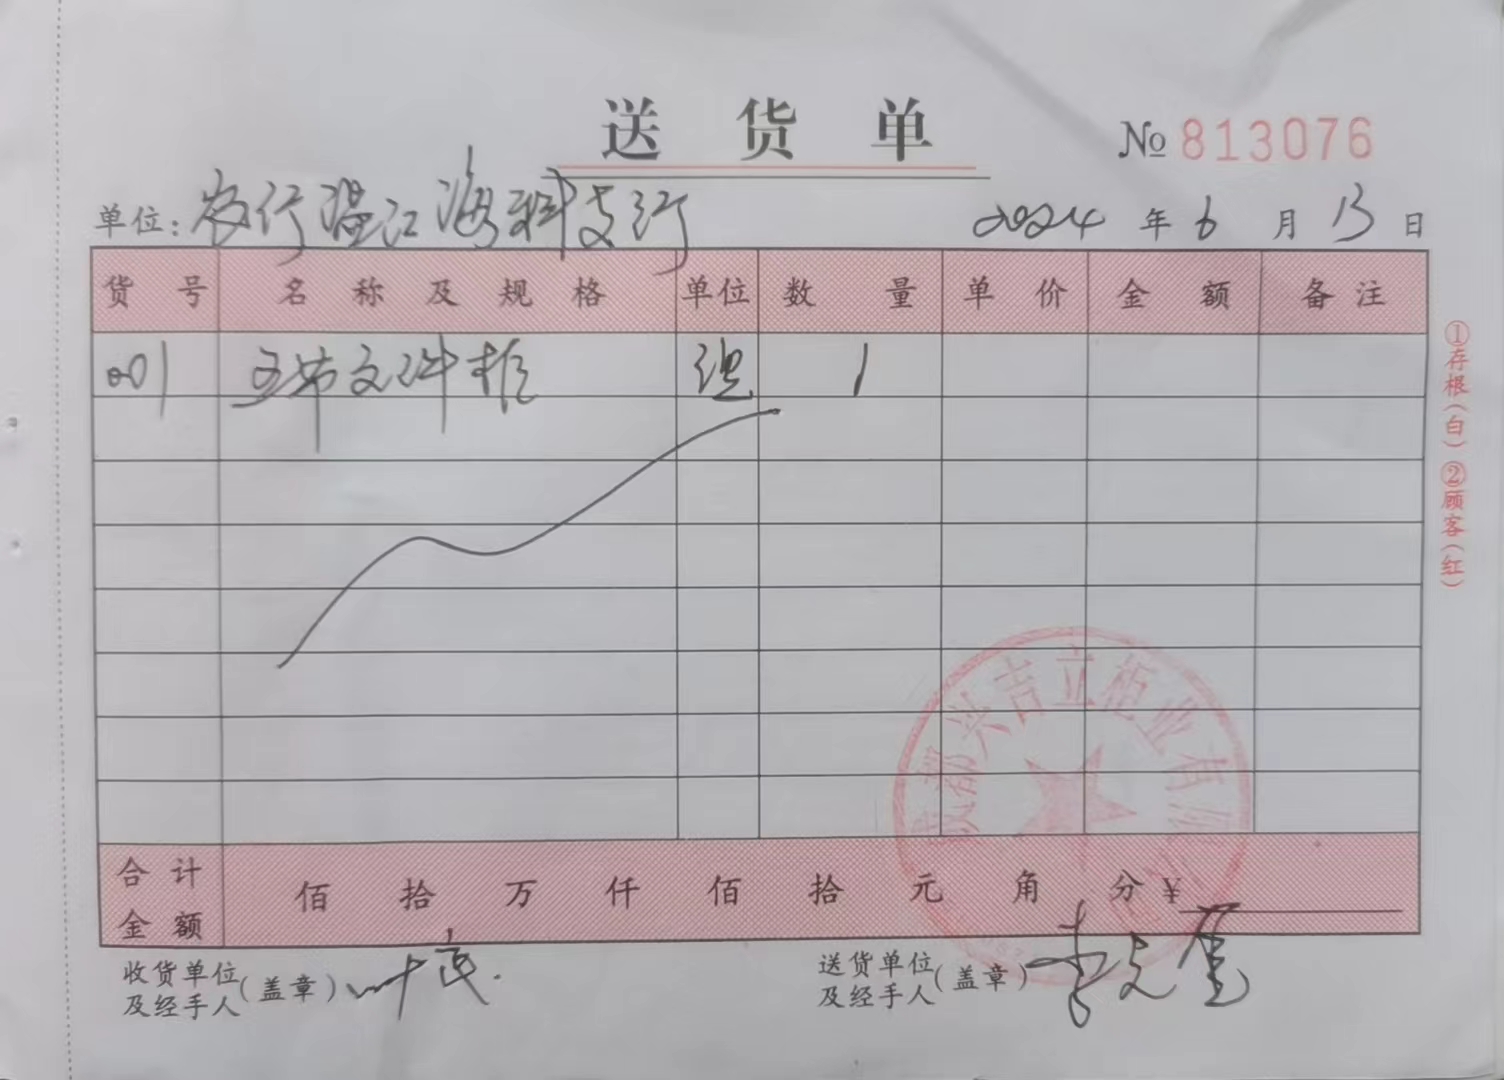 送货单
№ 813076
单位: 农行温江海科支行
2024 年 6 月 13 日
货号 名称及规格 单位 数量 单价 金额 备注
001 五节文件柜 组 1
合计金额 佰 拾 万 仟 佰 拾 元 角 分 ¥
收货单位及经手人(盖章)
送货单位及经手人(盖章) 李文
①存根(白) ②顾客(红)
成都兴吉立柜业有限公司